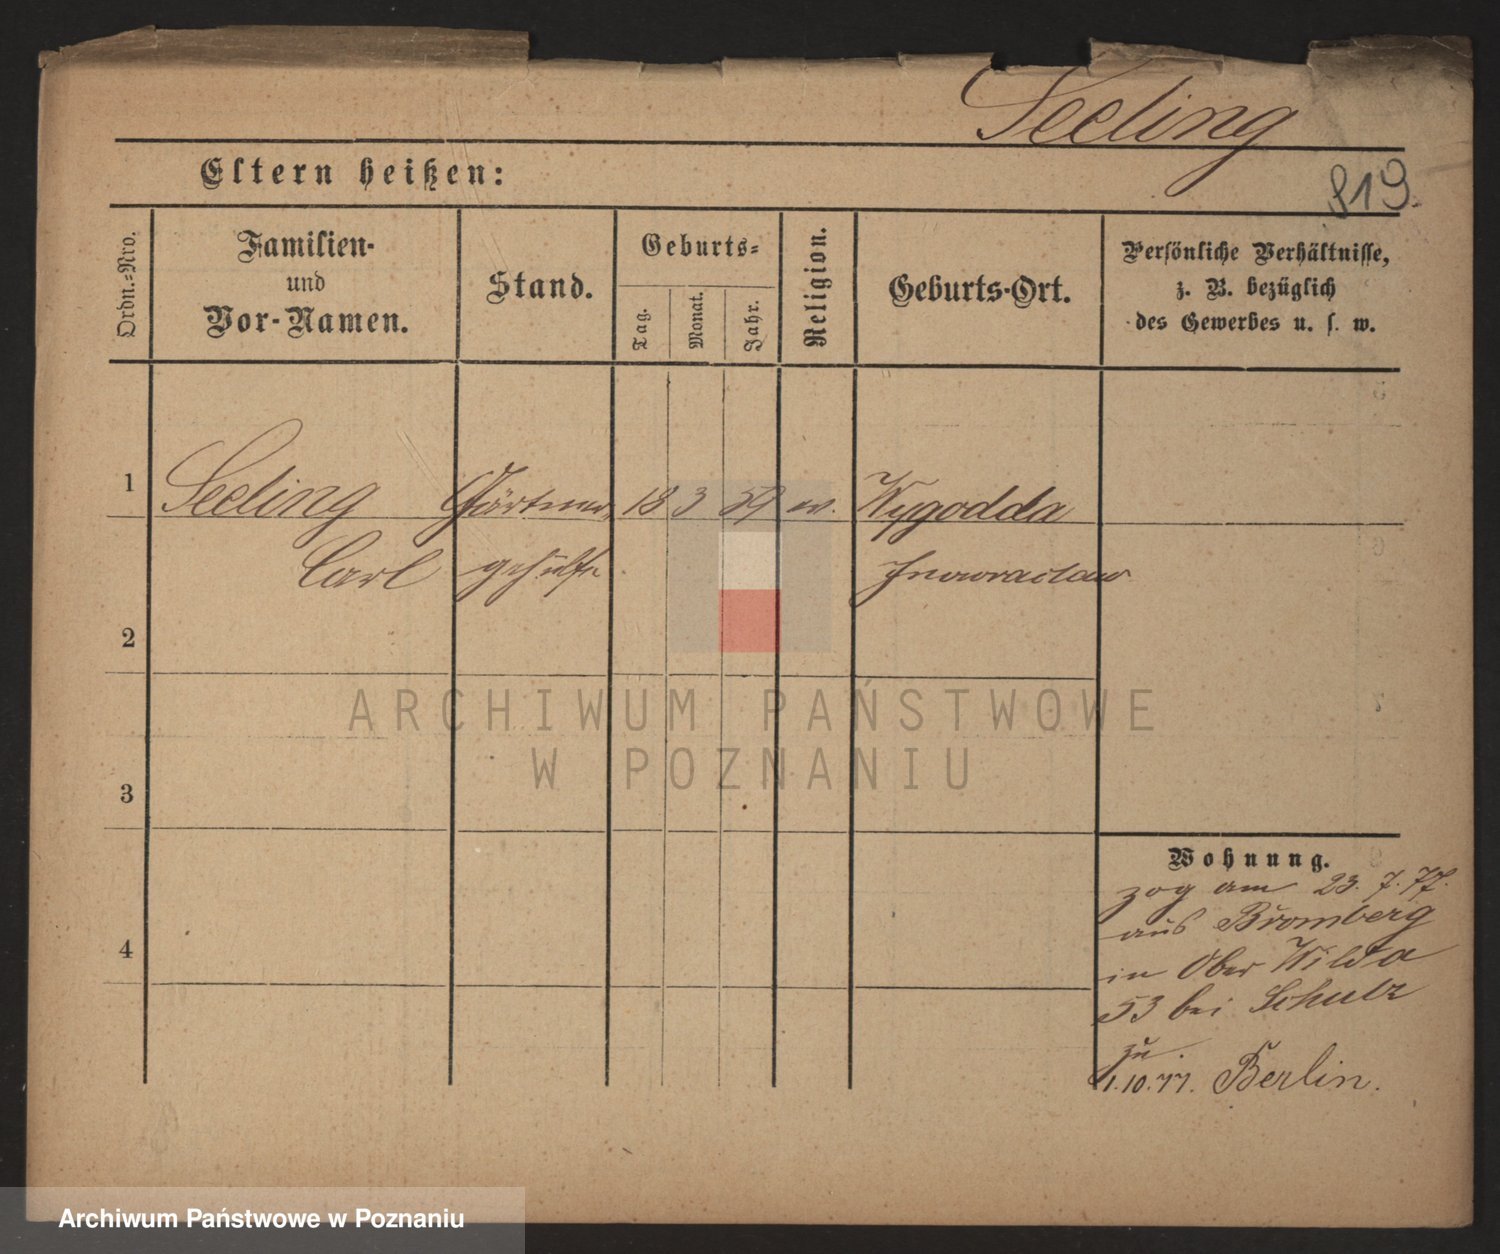 Seeling
Eltern heißen:
819.
Ordn.-Nro.
Familien-
und
Vor-Namen.
Stand.
Geburts-
Tag.
Monat.
Jahr.
Religion.
Geburts-Ort.
Persönliche Verhältnisse,
z. B. bezüglich
des Gewerbes u. s. w.
1 Seeling Gärtner 18 3 59 ev. Wygodda
Carl gehülfe Inowraclaw
2
3
4
Wohnung.
zog am 23. 7. 77.
aus Bromberg
in Ober Wilda
53 bei Schulz
zu
1.10.77. Berlin.
ARCHIWUM PAŃSTWOWE
W POZNANIU
Archiwum Państwowe w Poznaniu